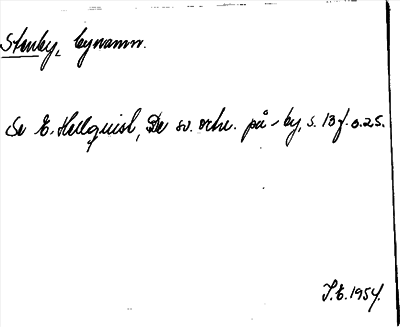 Stenby, bynamn.
Se E. Hellquist, De sv. ortn. på -by, s. 13 f. o. 25.
J.E. 1954.